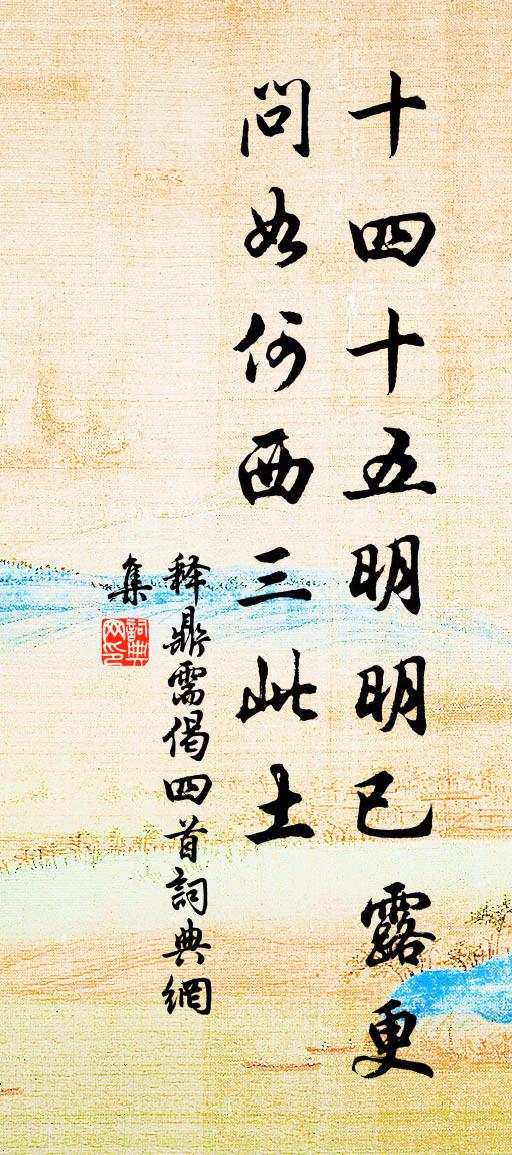 十四十五明明已露更
問如何西三此土
释鼎需偈四首詞典網
集
詞典
网印